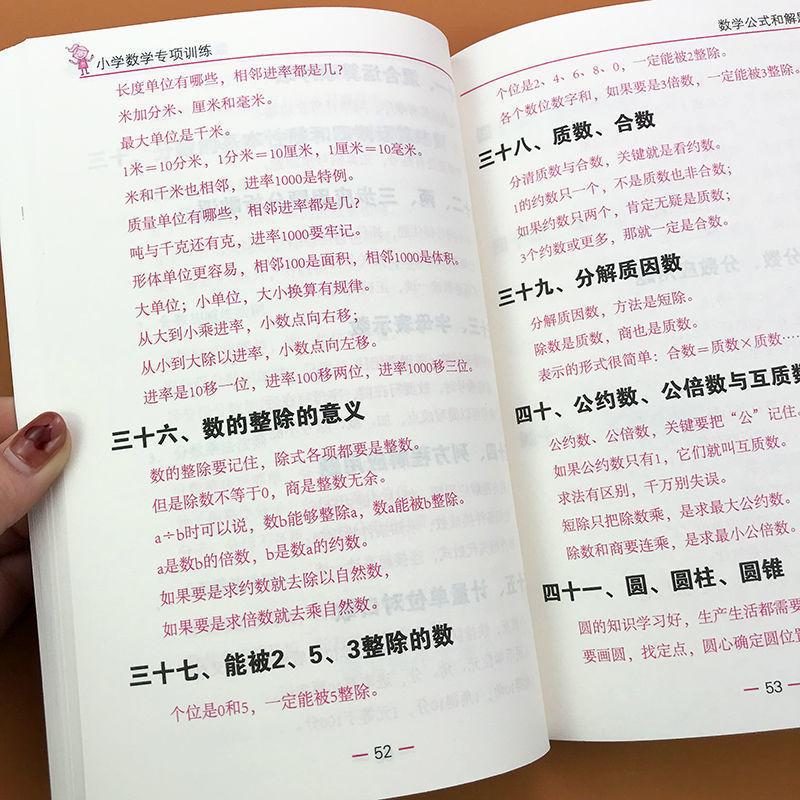 小学数学专项训练
长度单位有哪些，相邻进率都是几？
米加分米、厘米和毫米。
最大单位是千米。
1米＝10分米，1分米＝10厘米，1厘米＝10毫米。
米和千米也相邻，进率1000是特例。
质量单位有哪些，相邻进率都是几？
吨与千克还有克，进率1000要牢记。
形体单位更容易，相邻100是面积，相邻1000是体积。
大单位；小单位，大小换算有规律。
从大到小乘进率，小数点向右移；
从小到大除以进率，小数点向左移。
进率是10移一位，进率100移两位，进率1000移三位。
三十六、数的整除的意义
数的整除要记住，除式各项都要是整数。
但是除数不等于0，商是整数无余。
a÷b时可以说，数b能够整除a，数a能被b整除。
a是数b的倍数，b是数a的约数。
如果要是求约数就去除以自然数，
如果要是求倍数就去乘自然数。
三十七、能被2、5、3整除的数
个位是0和5，一定能被5整除。
52
数学公式和解题
个位是2、4、6、8、0，一定能被2整除。
各个数位数字和，如果要是3倍数，一定能被3整除。
三十八、质数、合数
分清质数与合数，关键就是看约数。
1的约数只一个，不是质数也非合数；
如果约数只两个，肯定无疑是质数；
3个约数或更多，那就一定是合数。
三十九、分解质因数
分解质因数，方法是短除。
除数是质数，商也是质数。
表示的形式很简单：合数＝质数×质数……
四十、公约数、公倍数与互质数
公约数、公倍数，关键要把“公”记住。
如果公约数只有1，它们就叫互质数。
求法有区别，千万别失误。
短除只把除数乘，是求最大公约数。
除数和商要连乘，是求最小公倍数。
四十一、圆、圆柱、圆锥
圆的知识学习好，生产生活都需要
要画圆，找定点，圆心确定圆位置
53